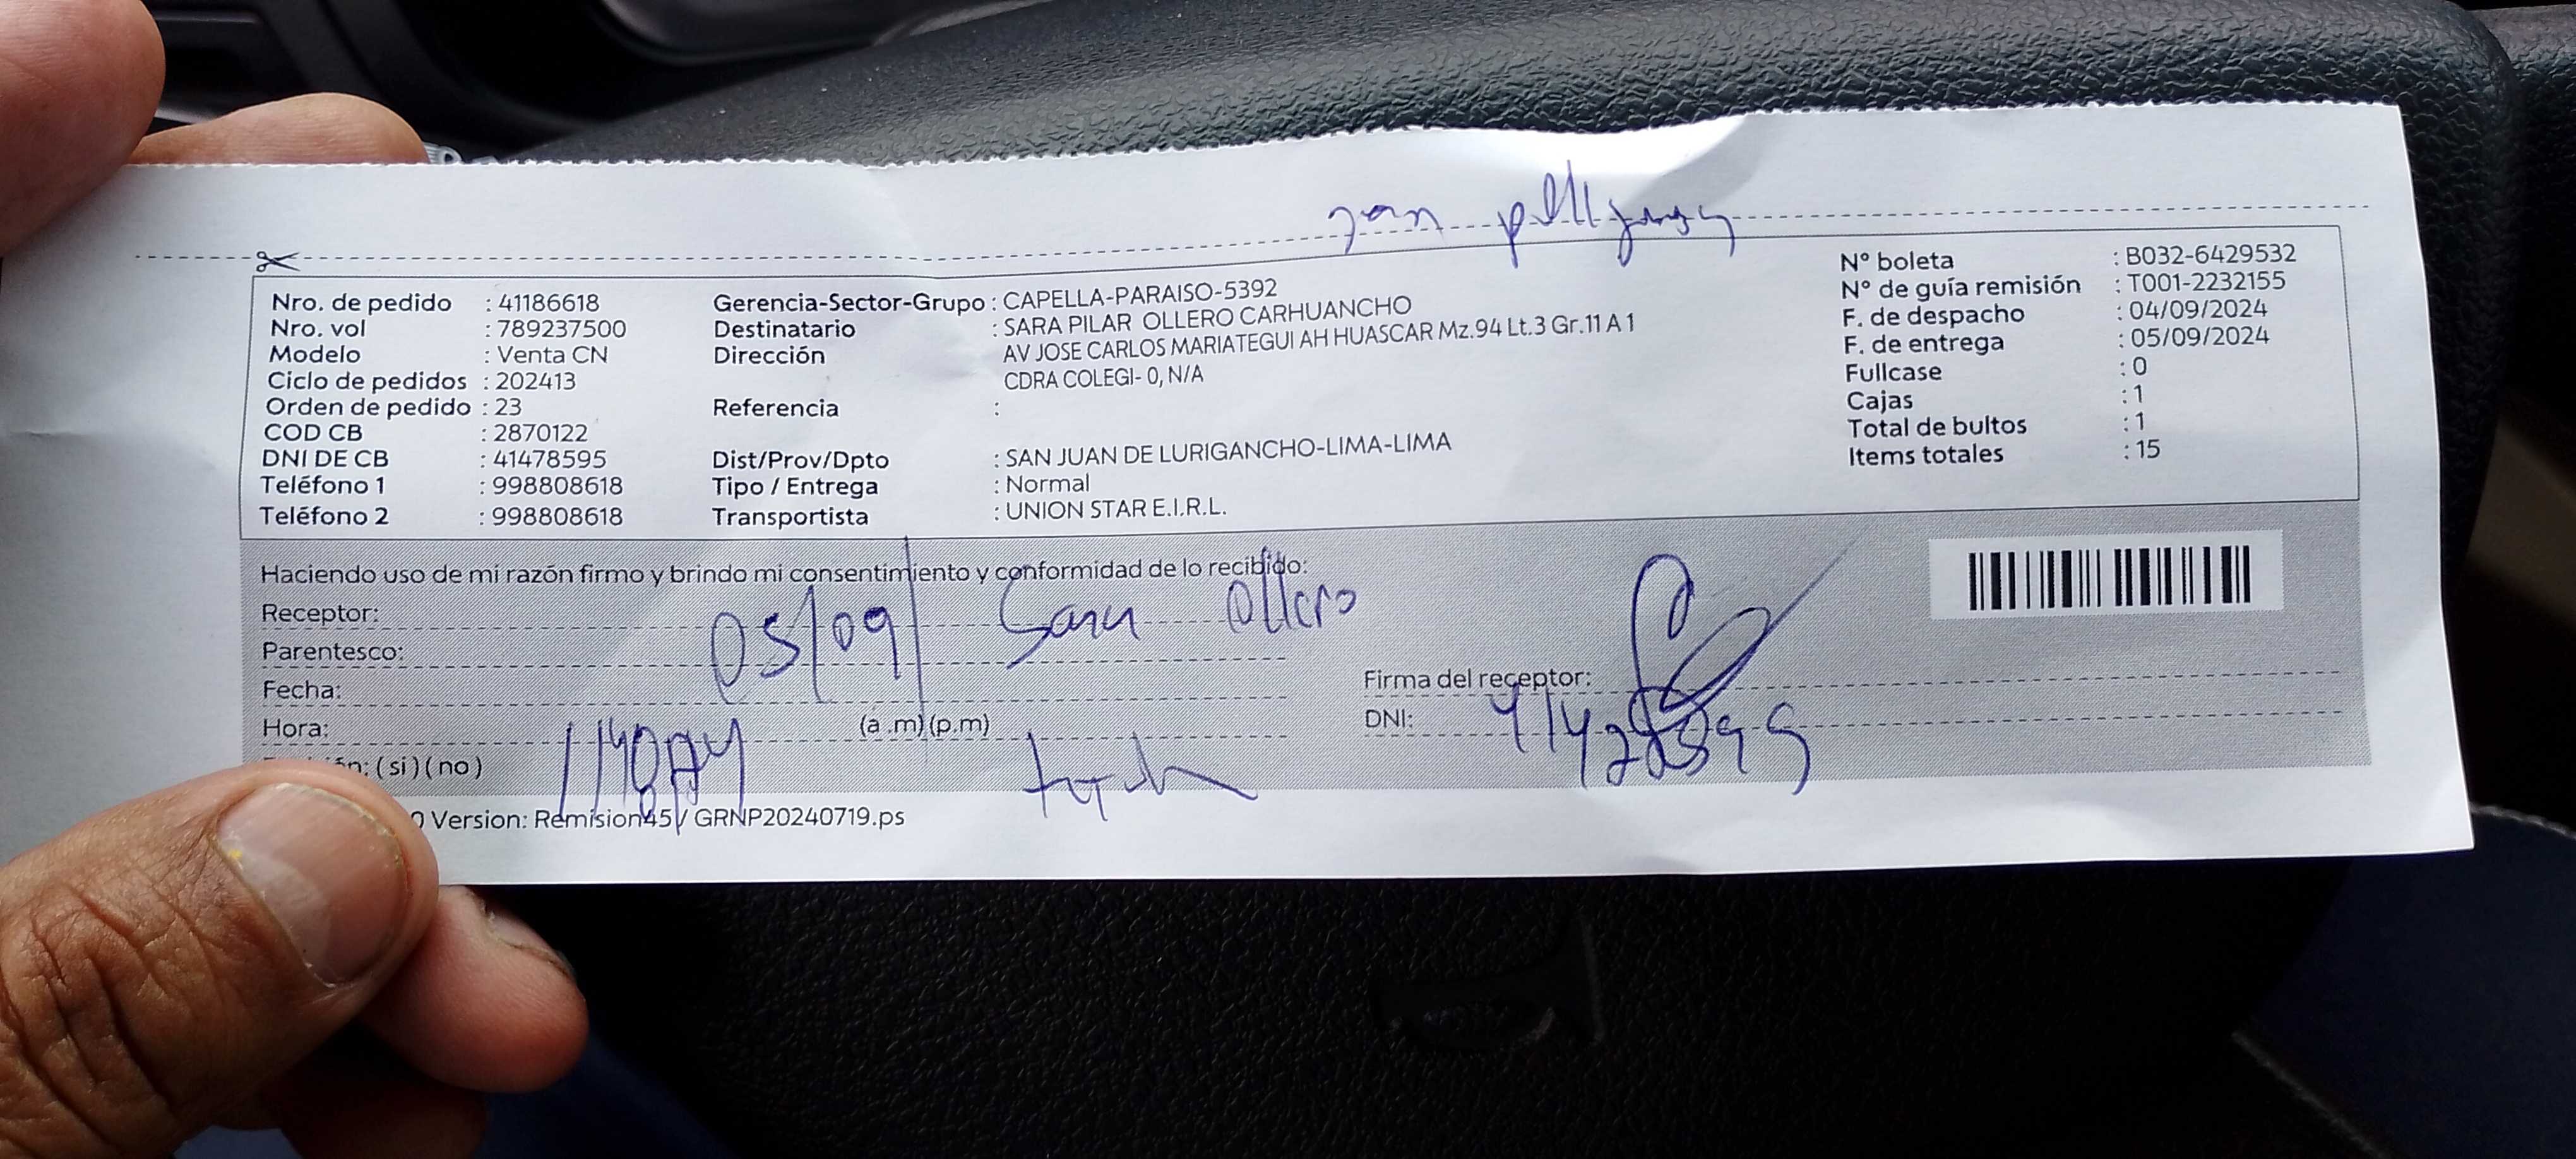 Nro. de pedido : 41186618
Nro. vol : 789237500
Modelo : Venta CN
Ciclo de pedidos : 202413
Orden de pedido : 23
COD CB : 2870122
DNI DE CB : 41478595
Teléfono 1 : 998808618
Teléfono 2 : 998808618
Gerencia-Sector-Grupo : CAPELLA-PARAISO-5392
Destinatario : SARA PILAR OLLERO CARHUANCHO
Dirección AV JOSE CARLOS MARIATEGUI AH HUASCAR Mz.94 Lt.3 Gr.11 A 1
CDRA COLEGI- 0, N/A
Referencia :
Dist/Prov/Dpto : SAN JUAN DE LURIGANCHO-LIMA-LIMA
Tipo / Entrega : Normal
Transportista : UNION STAR E.I.R.L.
N° boleta : B032-6429532
N° de guía remisión : T001-2232155
F. de despacho : 04/09/2024
F. de entrega : 05/09/2024
Fullcase : 0
Cajas : 1
Total de bultos : 1
Items totales : 15
Haciendo uso de mi razón firmo y brindo mi consentimiento y conformidad de lo recibido:
Receptor: Sara Ollero
Parentesco:
Fecha: 05/09/
Hora: (a .m) (p.m)
(si) (no)
Firma del receptor:
DNI:
Version: Remision45 / GRNP20240719.ps